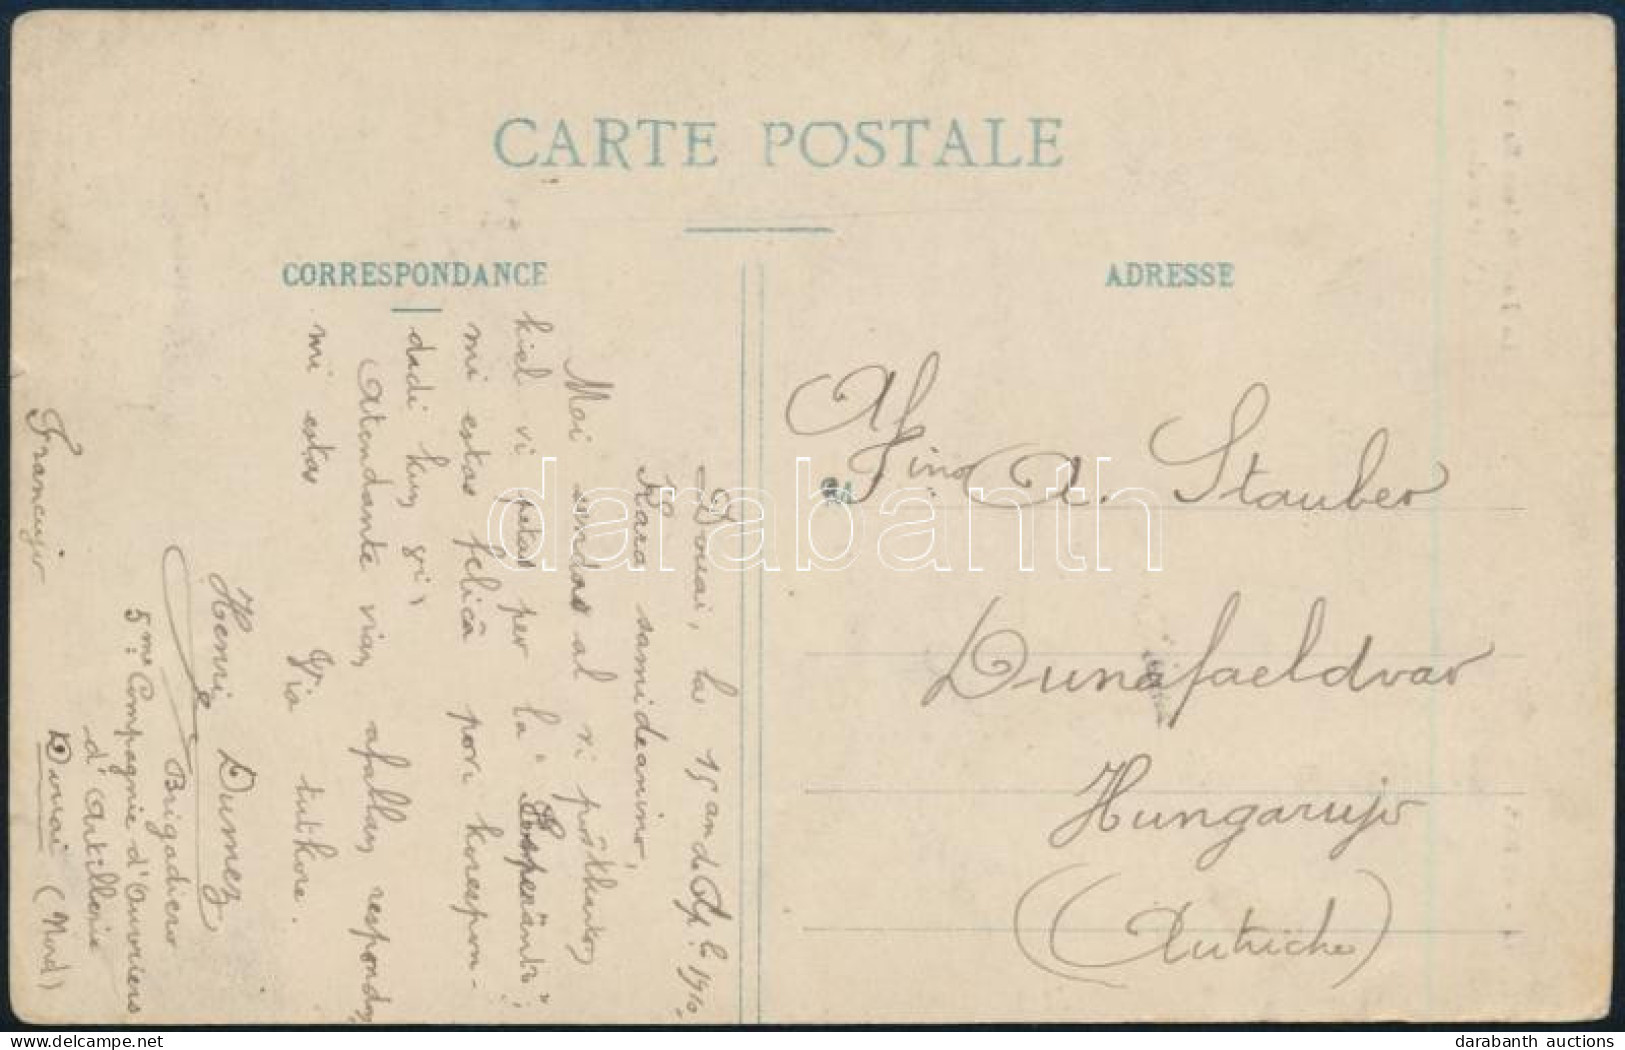 CARTE POSTALE
CORRESPONDANCE
ADRESSE
Douai, la 15an de 1910.
Kara samideanino,
Mai sendas al vi poŝtkarton
kiel vi petas per la "Esperanto";
mi estas feliĉa povi korespon-
dadi kun vi.
Atendante vian afablan respondon,
mi estas Via tutkore.
Henri Dumez
Brigadiero
5me Compagnie d'Ouvriers
d'Artillerie
Douai (Nord)
Francujo
Afino A. Stauber
Dunafaeldvar
Hungarujo
(Autriche)
darabanth
darabanth auctions